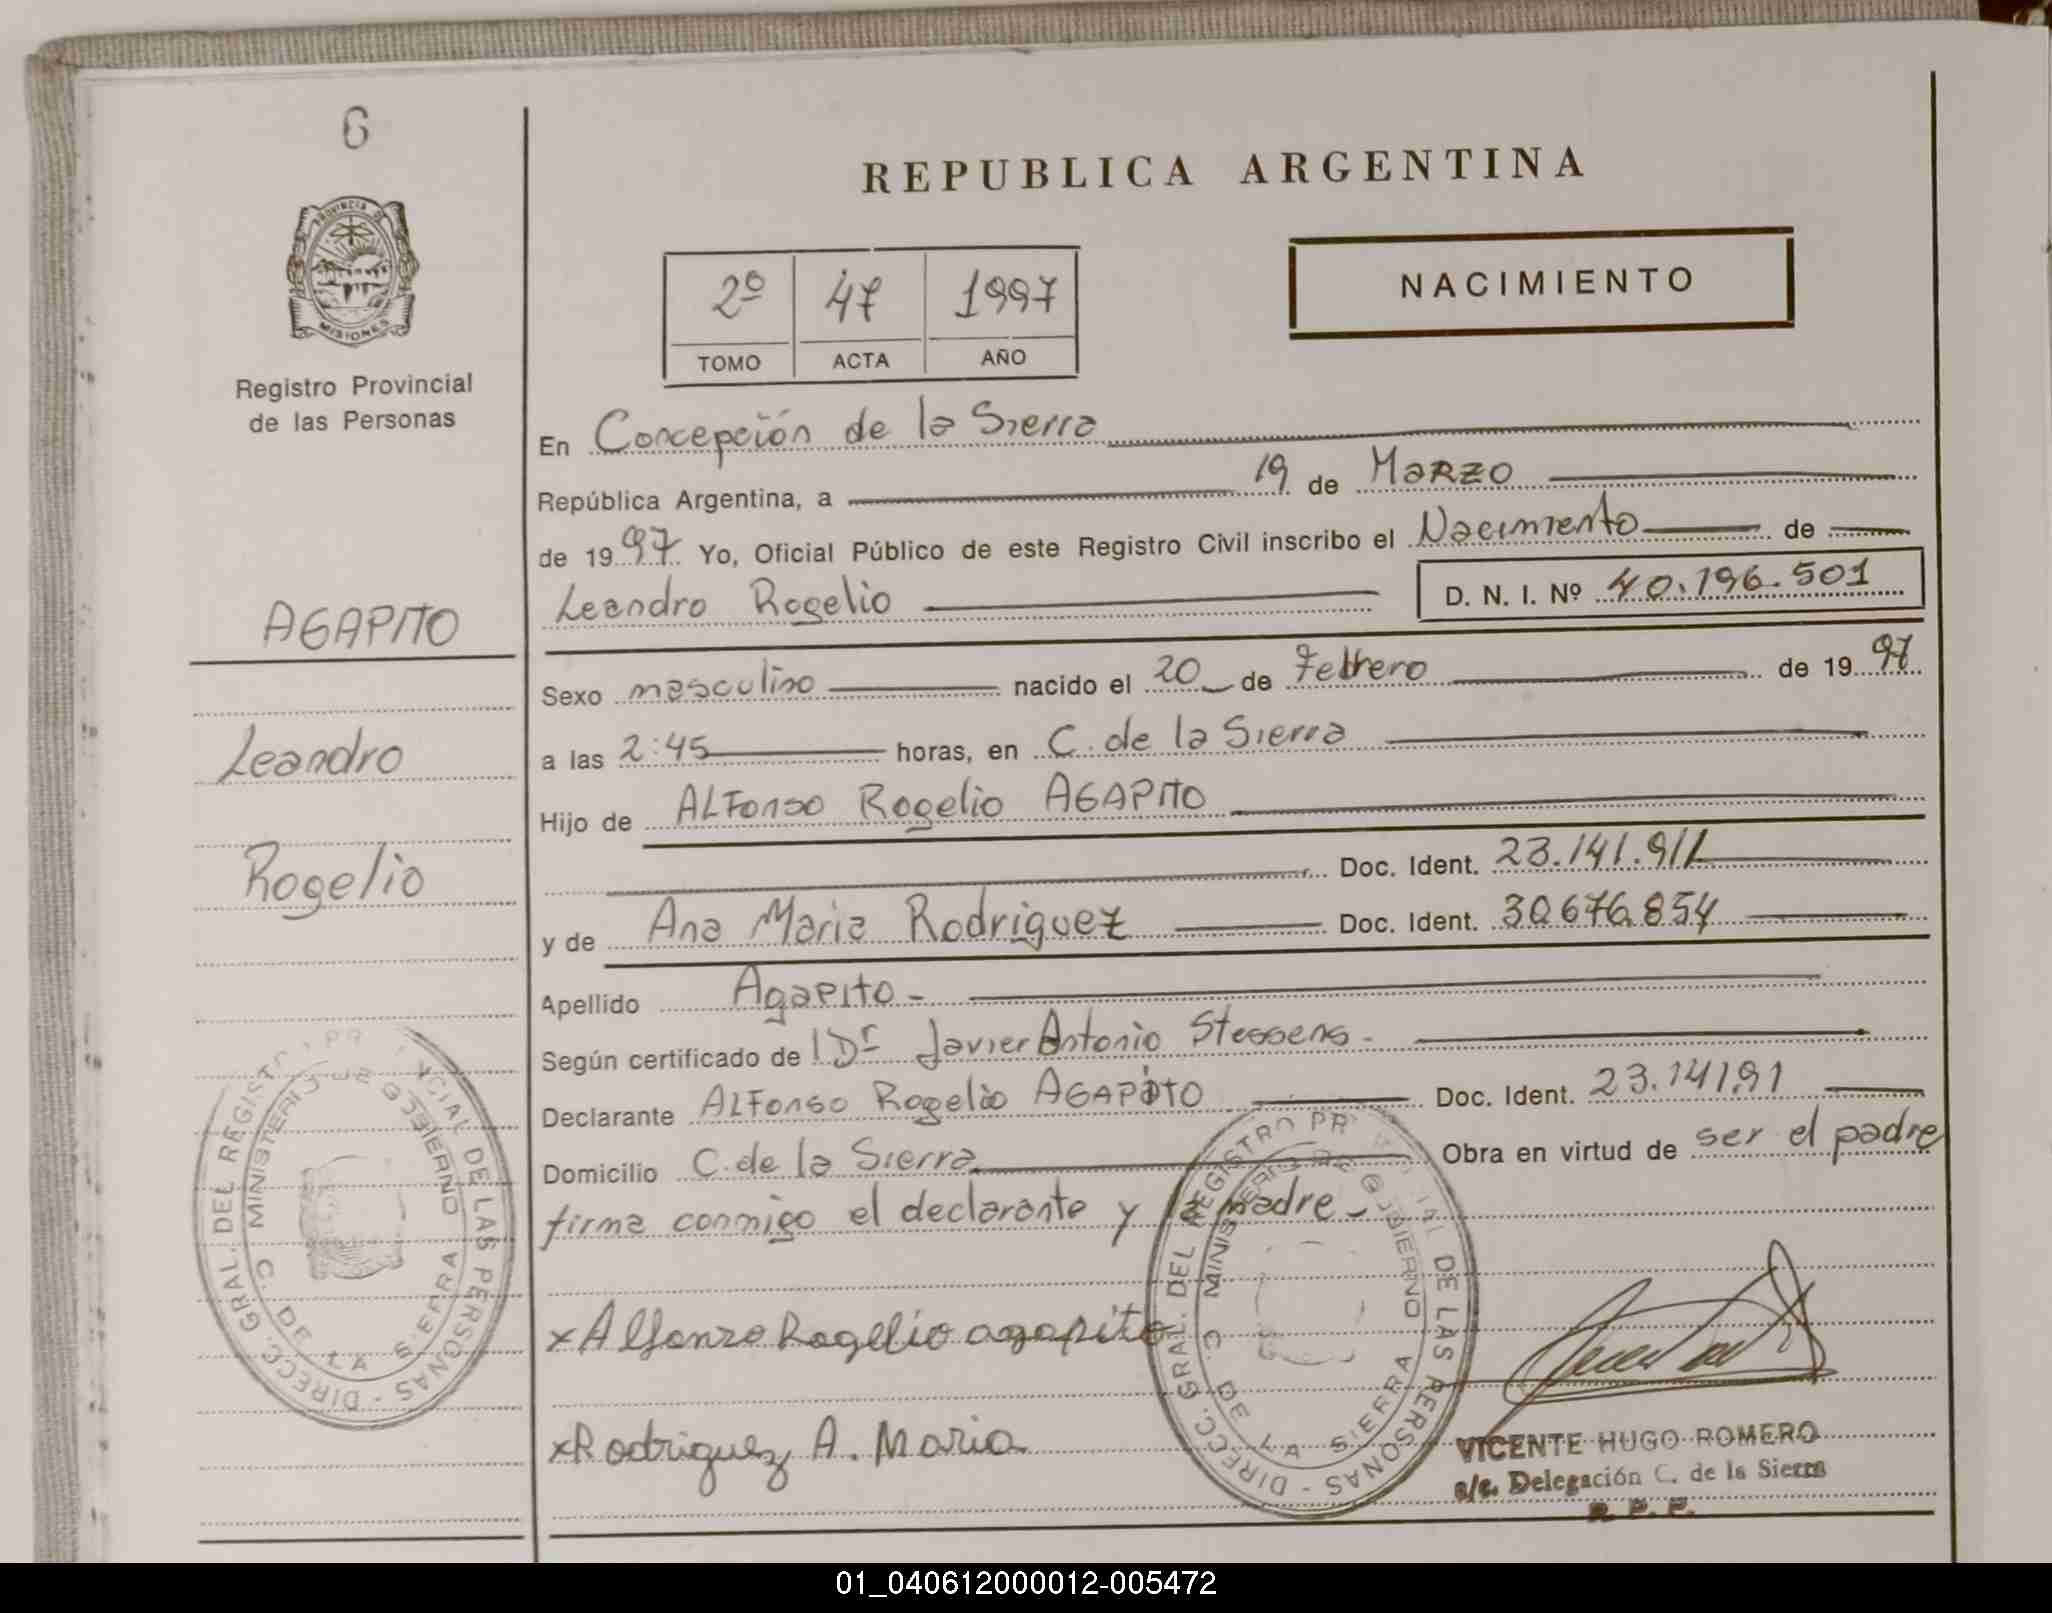 6
PROVINCIA DE
MISIONES
Registro Provincial
de las Personas
AGAPITO
Leandro
Rogelio
REPUBLICA ARGENTINA
NACIMIENTO
2º 47 1997
TOMO ACTA AÑO
En Concepción de la Sierra
República Argentina, a 19 de Marzo
de 1997 Yo, Oficial Público de este Registro Civil inscribo el Nacimiento de
Leandro Rogelio D. N. I. Nº 40.196.501
Sexo masculino nacido el 20 de Febrero de 1997
a las 2:45 horas, en C. de la Sierra
Hijo de ALFonso Rogelio AGAPITO
Doc. Ident. 23.141.911
y de Ana Maria Rodriguez Doc. Ident. 30.676.854
Apellido Agapito -
Según certificado de Dr Javier Antonio Stessens -
Declarante ALFonso Rogelio AGAPITO Doc. Ident.
Domicilio C. de la Sierra Obra en virtud de ser el padre
firma conmigo el declarante y la madre -
x Alfonzo Rogelio agapito
x Rodriguez A. Maria
DIRECC. GRAL. DEL REGISTRO PROVINCIAL DE LAS PERSONAS -
MINISTERIO DE GOBIERNO
C. DE LA SIERRA
DIRECC. GRAL. DEL REGISTRO PROVINCIAL DE LAS PERSONAS -
MINISTERIO DE GOBIERNO
C. DE LA SIERRA
VICENTE HUGO ROMERO
a/c. Delegación C. de la Sierra
R. P. P.
01_040612000012-005472